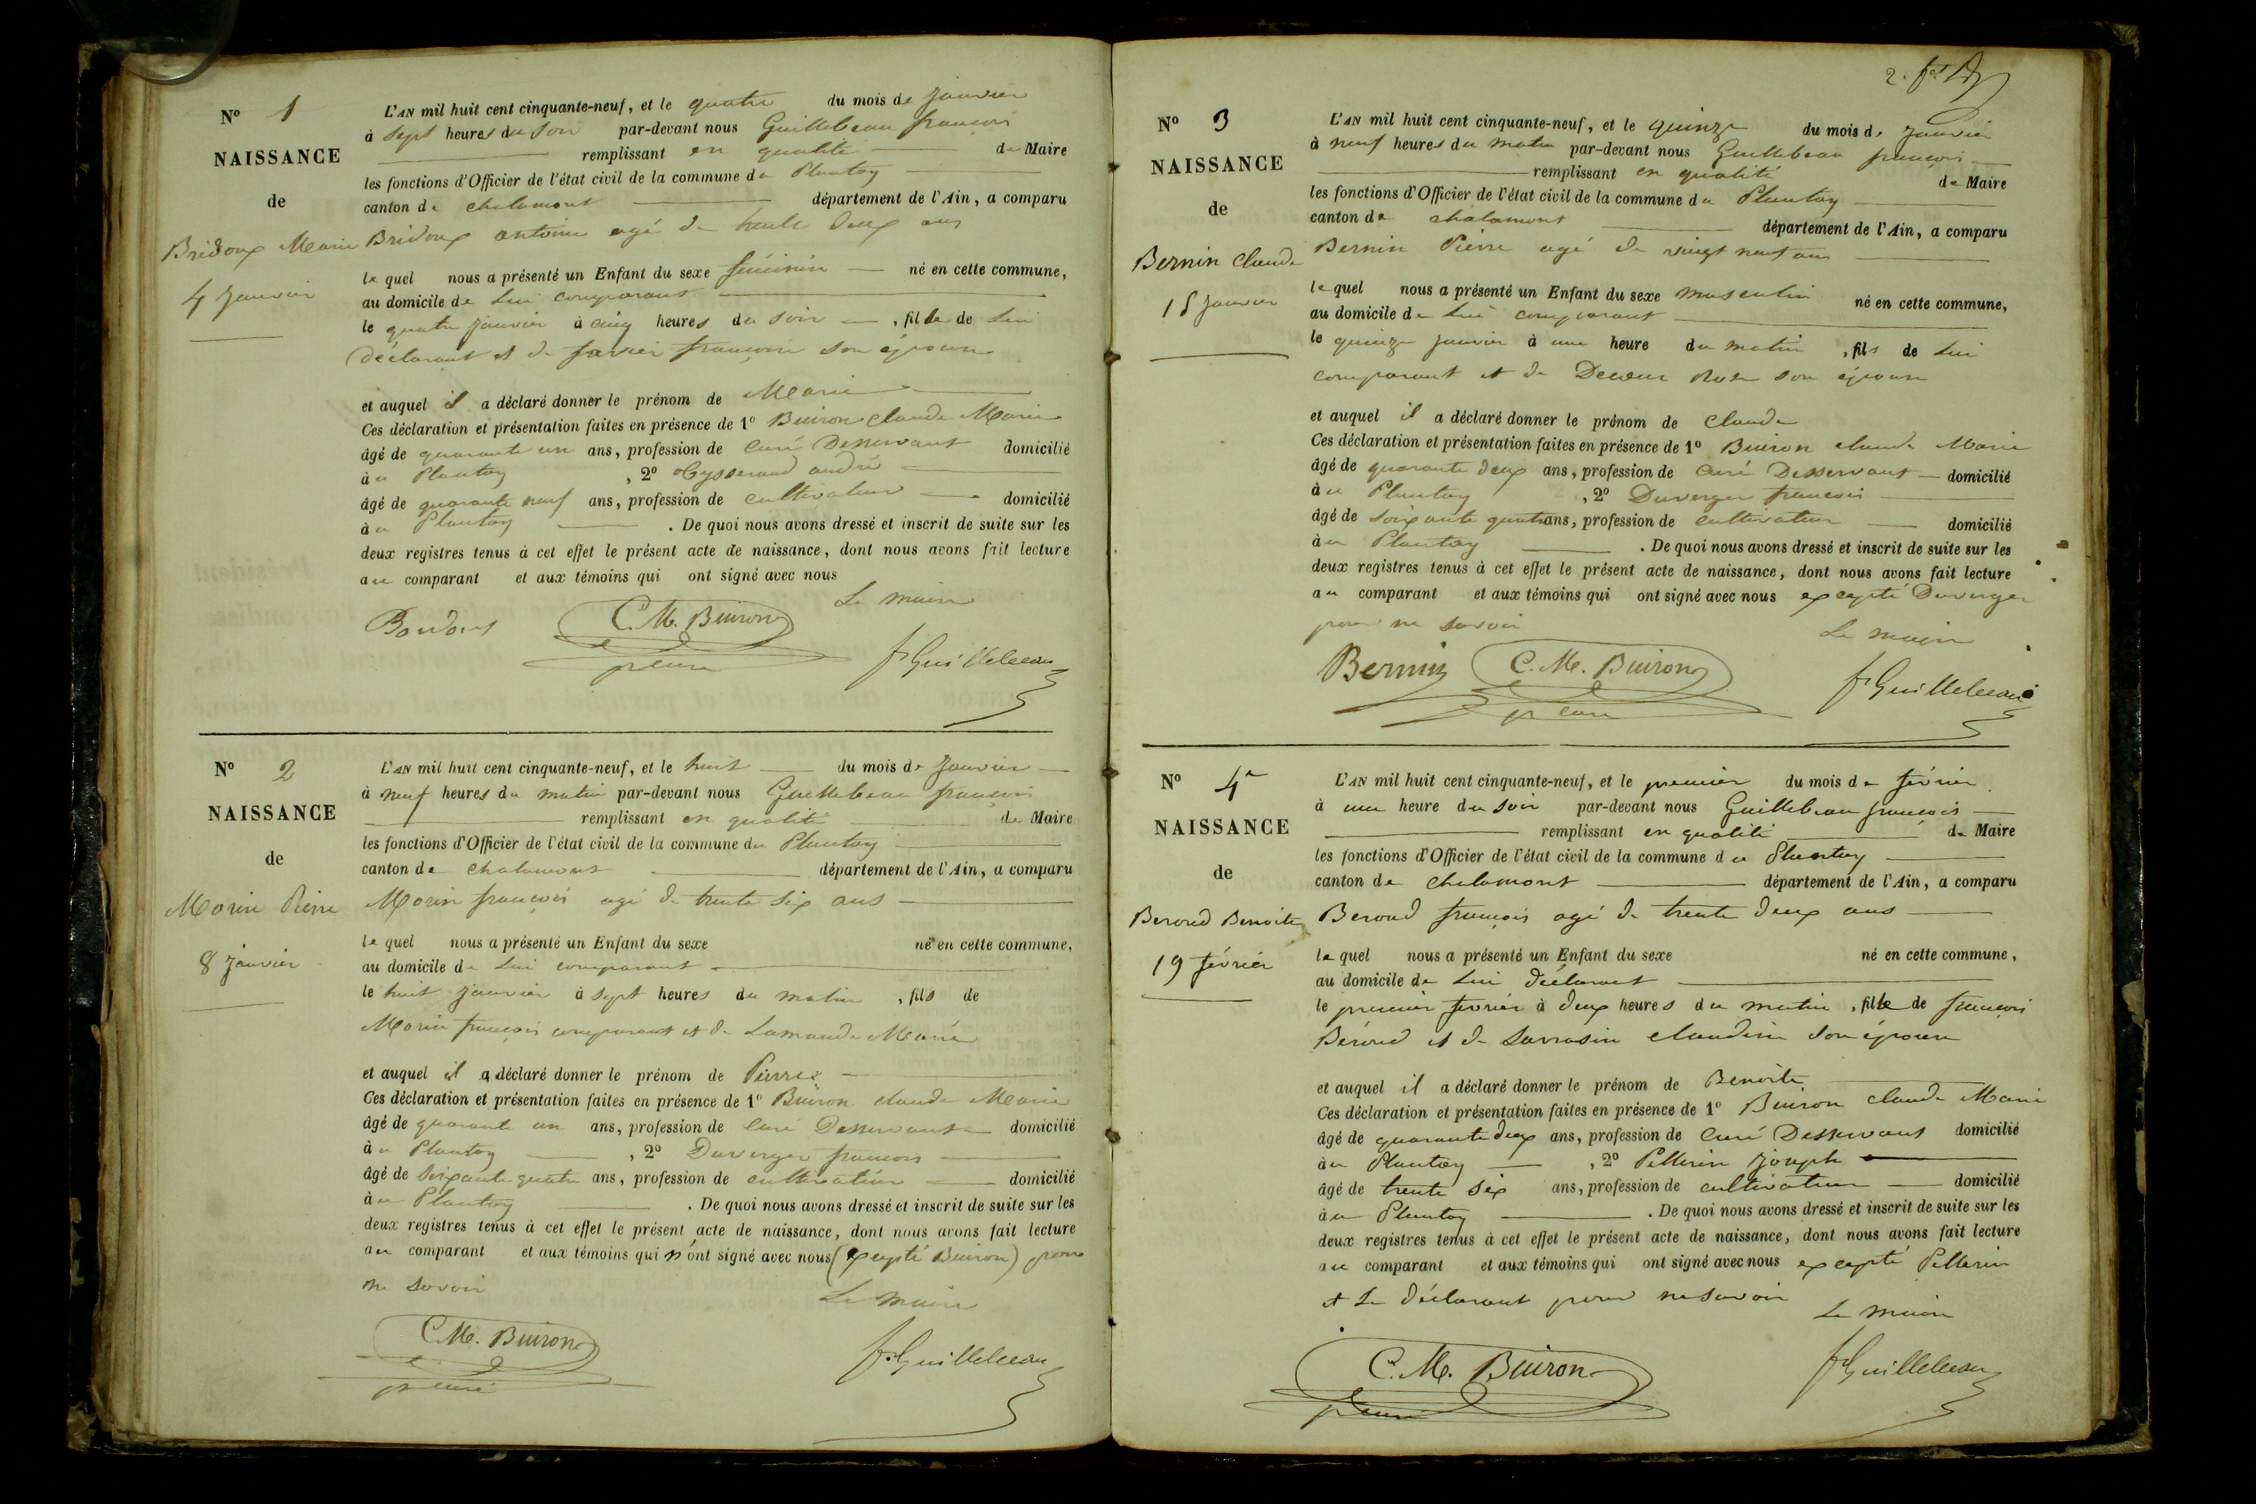 N° 1
NAISSANCE
de
Bridoux Marie
4 Janvier
L'AN mil huit cent cinquante-neuf, et le quatre du mois de Janvier
à sept heures du soir par-devant nous Guillebeau françois
remplissant en qualité de Maire
les fonctions d'Officier de l'état civil de la commune du Plantay
canton de chalamont département de l'Ain, a comparu
Bridoux antoine agé de trente deux ans
le quel nous a présenté un Enfant du sexe féminin né en cette commune,
au domicile de lui comparant
le quatre janvier à cinq heures du soir, fille de lui
déclarant et de françoise son épouse
et auquel il a déclaré donner le prénom de Marie
Ces déclaration et présentation faites en présence de 1° Buiron claude Marie
âgé de quarante un ans, profession de curé Desservant domicilié
au Plantay, 2° andré
âgé de quarante neuf ans, profession de cultivateur domicilié
au Plantay. De quoi nous avons dressé et inscrit de suite sur les
deux registres tenus à cet effet le présent acte de naissance, dont nous avons fait lecture
au comparant et aux témoins qui ont signé avec nous
Le maire
C. M. Buiron
f. Guillebeau
N° 2
NAISSANCE
de
Morin Pierre
8 janvier
L'AN mil huit cent cinquante-neuf, et le huit du mois de Janvier
à neuf heures du matin par-devant nous Guillebeau françois
remplissant en qualité de Maire
les fonctions d'Officier de l'état civil de la commune du Plantay
canton de chalamont département de l'Ain, a comparu
Morin françois agé de trente six ans
le quel nous a présenté un Enfant du sexe né en cette commune,
au domicile de lui comparant
le huit janvier à sept heures du matin, fils de
Morin françois comparant et de Lamande Marie
et auquel il a déclaré donner le prénom de Pierre
Ces déclaration et présentation faites en présence de 1° Buiron claude Marie
âgé de quarante un ans, profession de curé Desservant domicilié
au Plantay, 2° Duverger francois
âgé de soixante quatre ans, profession de cultivateur domicilié
au Plantay. De quoi nous avons dressé et inscrit de suite sur les
deux registres tenus à cet effet le présent acte de naissance, dont nous avons fait lecture
au comparant et aux témoins qui n'ont signé avec nous (excepté Buiron) pour
ne savoir
Le maire
C. M. Buiron
p. curé
f. Guillebeau
2.
N° 3
NAISSANCE
de
Bernin claude
15 Janvier
L'AN mil huit cent cinquante-neuf, et le quinze du mois de Janvier
à neuf heures du matin par-devant nous Guillebeau françois
remplissant en qualité de Maire
les fonctions d'Officier de l'état civil de la commune du Plantay
canton de chalamont département de l'Ain, a comparu
Bernin Pierre agé de vingt neuf ans
le quel nous a présenté un Enfant du sexe masculin né en cette commune,
au domicile de lui comparant
le quinze janvier à une heure du matin, fils de lui
comparant et de son épouse
et auquel il a déclaré donner le prénom de claude
Ces déclaration et présentation faites en présence de 1° Buiron claude Marie
âgé de quarante deux ans, profession de curé Desservant domicilié
au Plantay, 2° Duverger francois
âgé de soixante quatre ans, profession de cultivateur domicilié
au Plantay. De quoi nous avons dressé et inscrit de suite sur les
deux registres tenus à cet effet le présent acte de naissance, dont nous avons fait lecture
au comparant et aux témoins qui ont signé avec nous excepté Duverger
pour ne savoir
Le maire
Bernin
C. M. Buiron
f. Guillebeau
N° 4
NAISSANCE
de
Beroud Benoite
19 février
L'AN mil huit cent cinquante-neuf, et le premier du mois de février
à une heure du soir par-devant nous Guillebeau françois
remplissant en qualité de Maire
les fonctions d'Officier de l'état civil de la commune du Plantay
canton de chalamont département de l'Ain, a comparu
Beroud françois agé de trente deux ans
le quel nous a présenté un Enfant du sexe né en cette commune,
au domicile de lui déclarant
le premier février à deux heures du matin, fille de françois
Béroud et de Sarrasin claudine son épouse
et auquel il a déclaré donner le prénom de Benoite
Ces déclaration et présentation faites en présence de 1° Buiron claude Marie
âgé de quarante deux ans, profession de curé Desservant domicilié
au Plantay, 2° Pellerin Joseph
âgé de trente six ans, profession de cultivateur domicilié
au Plantay. De quoi nous avons dressé et inscrit de suite sur les
deux registres tenus à cet effet le présent acte de naissance, dont nous avons fait lecture
au comparant et aux témoins qui ont signé avec nous excepté Pellerin
et le déclarant pour ne savoir
Le maire
C. M. Buiron
f. Guillebeau